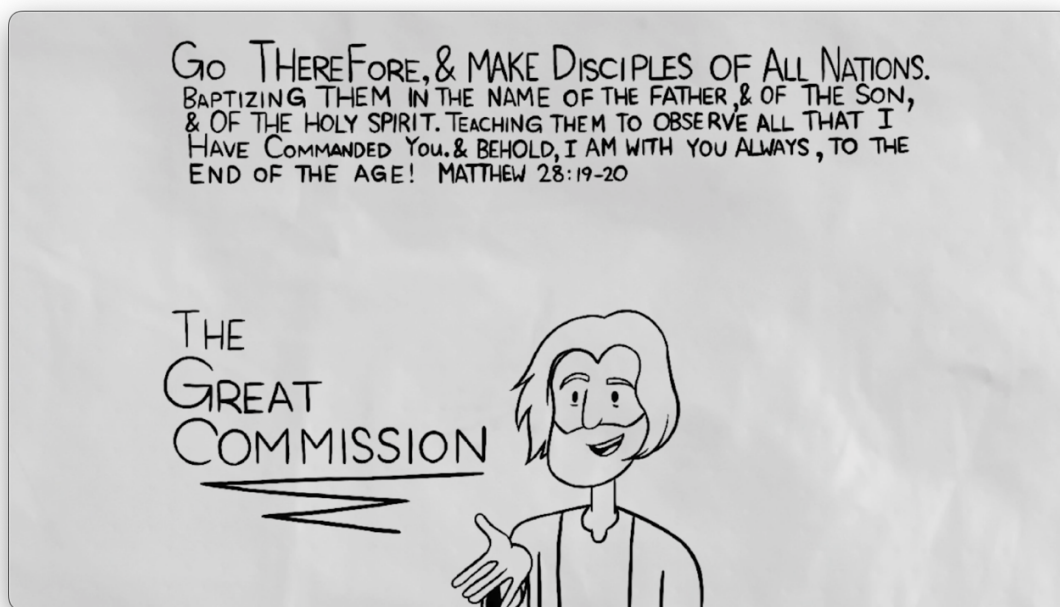 Go THEREFORE, & MAKE DISCIPLES OF ALL NATIONS.
BAPTIZING THEM IN THE NAME OF THE FATHER, & OF THE SON,
& OF THE HOLY SPIRIT. TEACHING THEM TO OBSERVE ALL THAT I
HAVE COMMANDED YOU. & BEHOLD, I AM WITH YOU ALWAYS, TO THE
END OF THE AGE! MATTHEW 28:19-20
THE
GREAT
COMMISSION